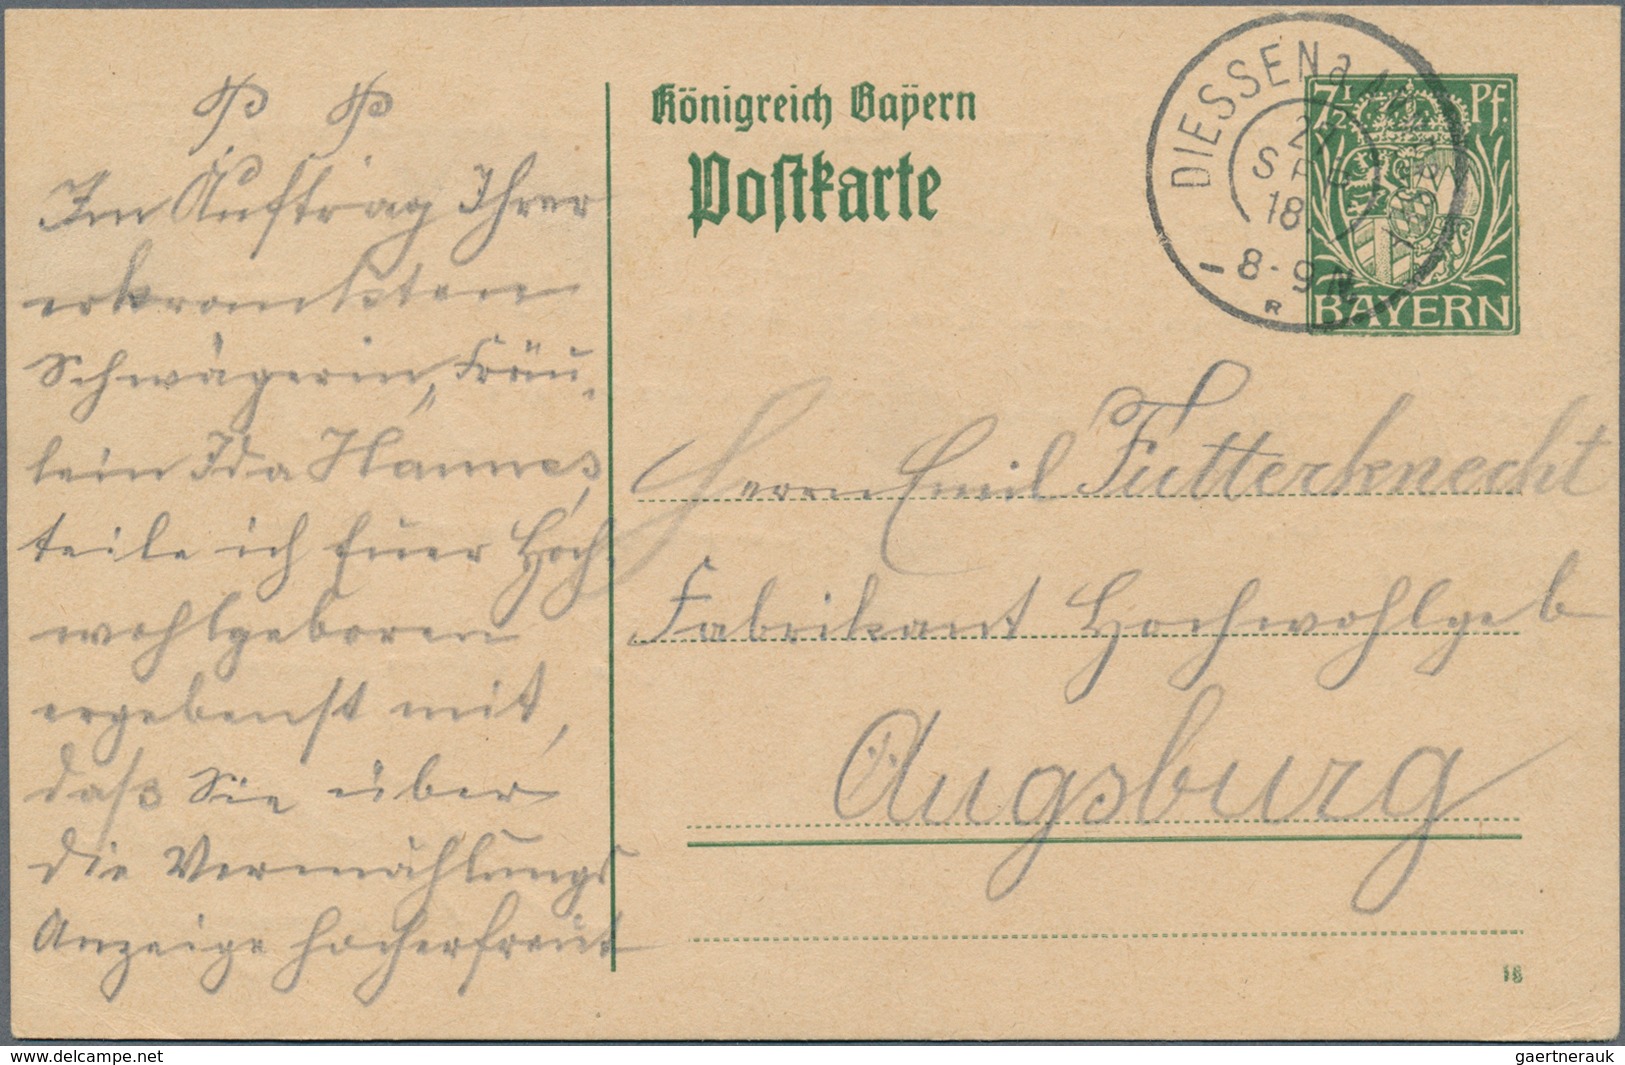 PP PP
Im Auftrag Ihrer
erkrankten
Schwägerin, Fräu-
lein Ida Hannes,
teile ich Euer Hoch-
wohlgeboren
ergebenst mit,
daß Sie über
die Vermählungs
Anzeige hocherfreut
Königreich Bayern
Postkarte
DIESSEN a.
SEP
18
8-9 N
R
7½ Pf.
BAYERN
Herrn Emil Futterknecht
Fabrikant Hochwohlgeb
Augsburg
18
www.delcampe.net
gaertnerauk